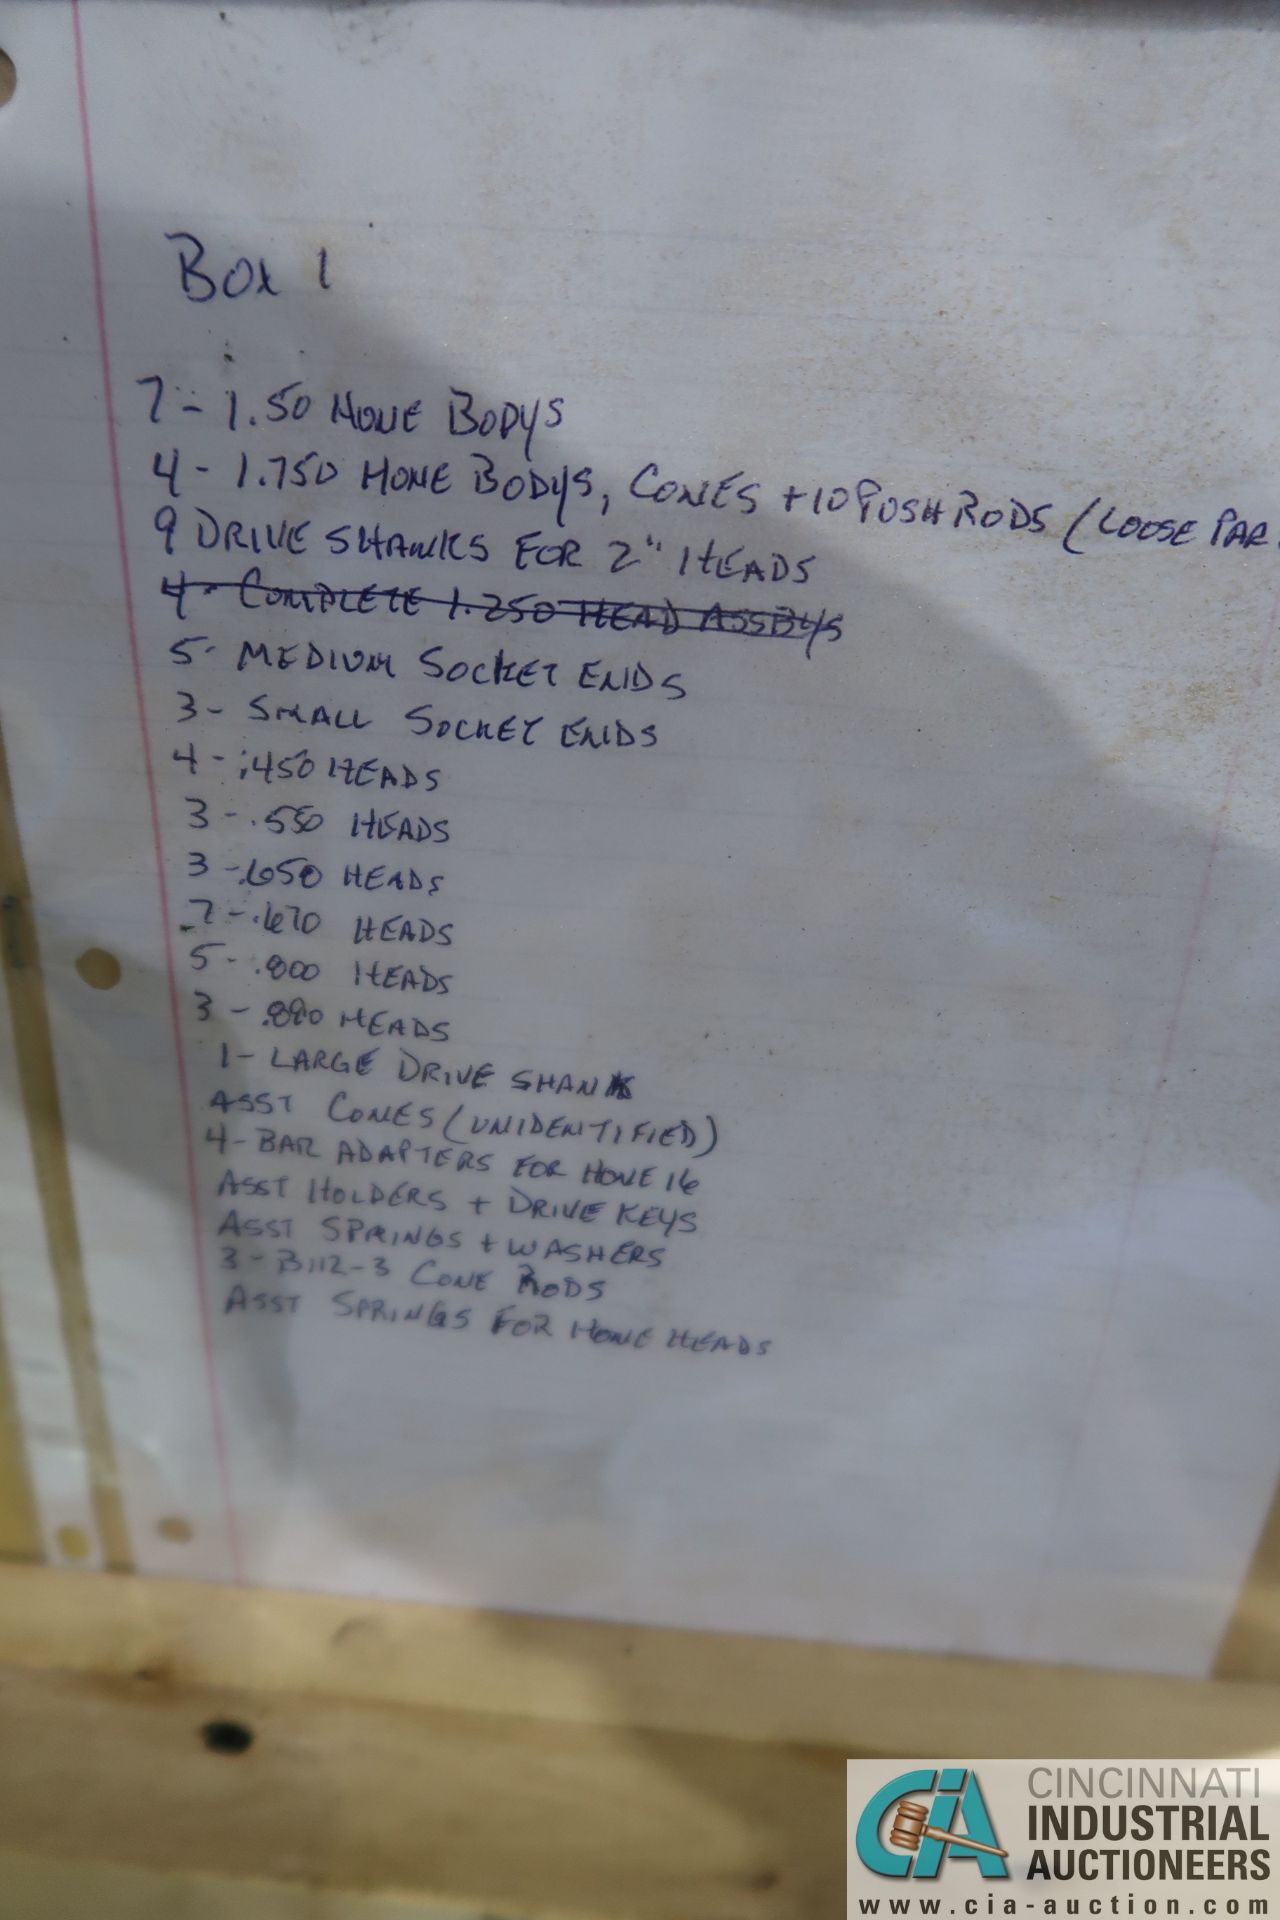 Box 1
7 - 1.50 HONE BODYS
4 - 1.750 HONE BODYS, CONES + 10 PUSH RODS (LOOSE PAR
9 DRIVE SHANKS FOR 2" HEADS
4 - COMPLETE 1.250 HEAD ASSBYS
5 - MEDIUM SOCKET ENDS
3 - SMALL SOCKET ENDS
4 - .450 HEADS
3 - .550 HEADS
3 - .650 HEADS
7 - .670 HEADS
5 - .800 HEADS
3 - HEADS
1 - LARGE DRIVE SHANK
ASST CONES (UNIDENTIFIED)
4 - BAR ADAPTERS FOR HONE 16
ASST HOLDERS + DRIVE KEYS
ASST SPRINGS + WASHERS
3 - B112-3 CONE RODS
ASST SPRINGS FOR HONE HEADS
CiA
CINCINNATI
INDUSTRIAL
AUCTIONEERS
www.cia-auction.com